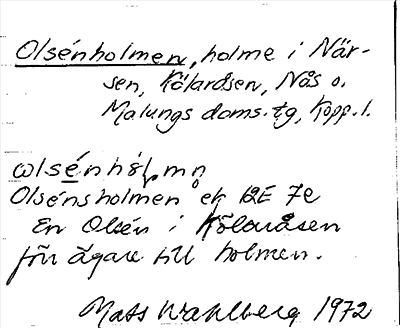 Olsénholmen, holme i När-
sen, Kölaråsen, Nås o.
Malungs doms.tg, Kopp.l.
ωlsénhålmn
Olsénsholmen ek 12E 7e
En Olsén i Kölaråsen
förr ägare till holmen.
Mats Wahlberg 1972